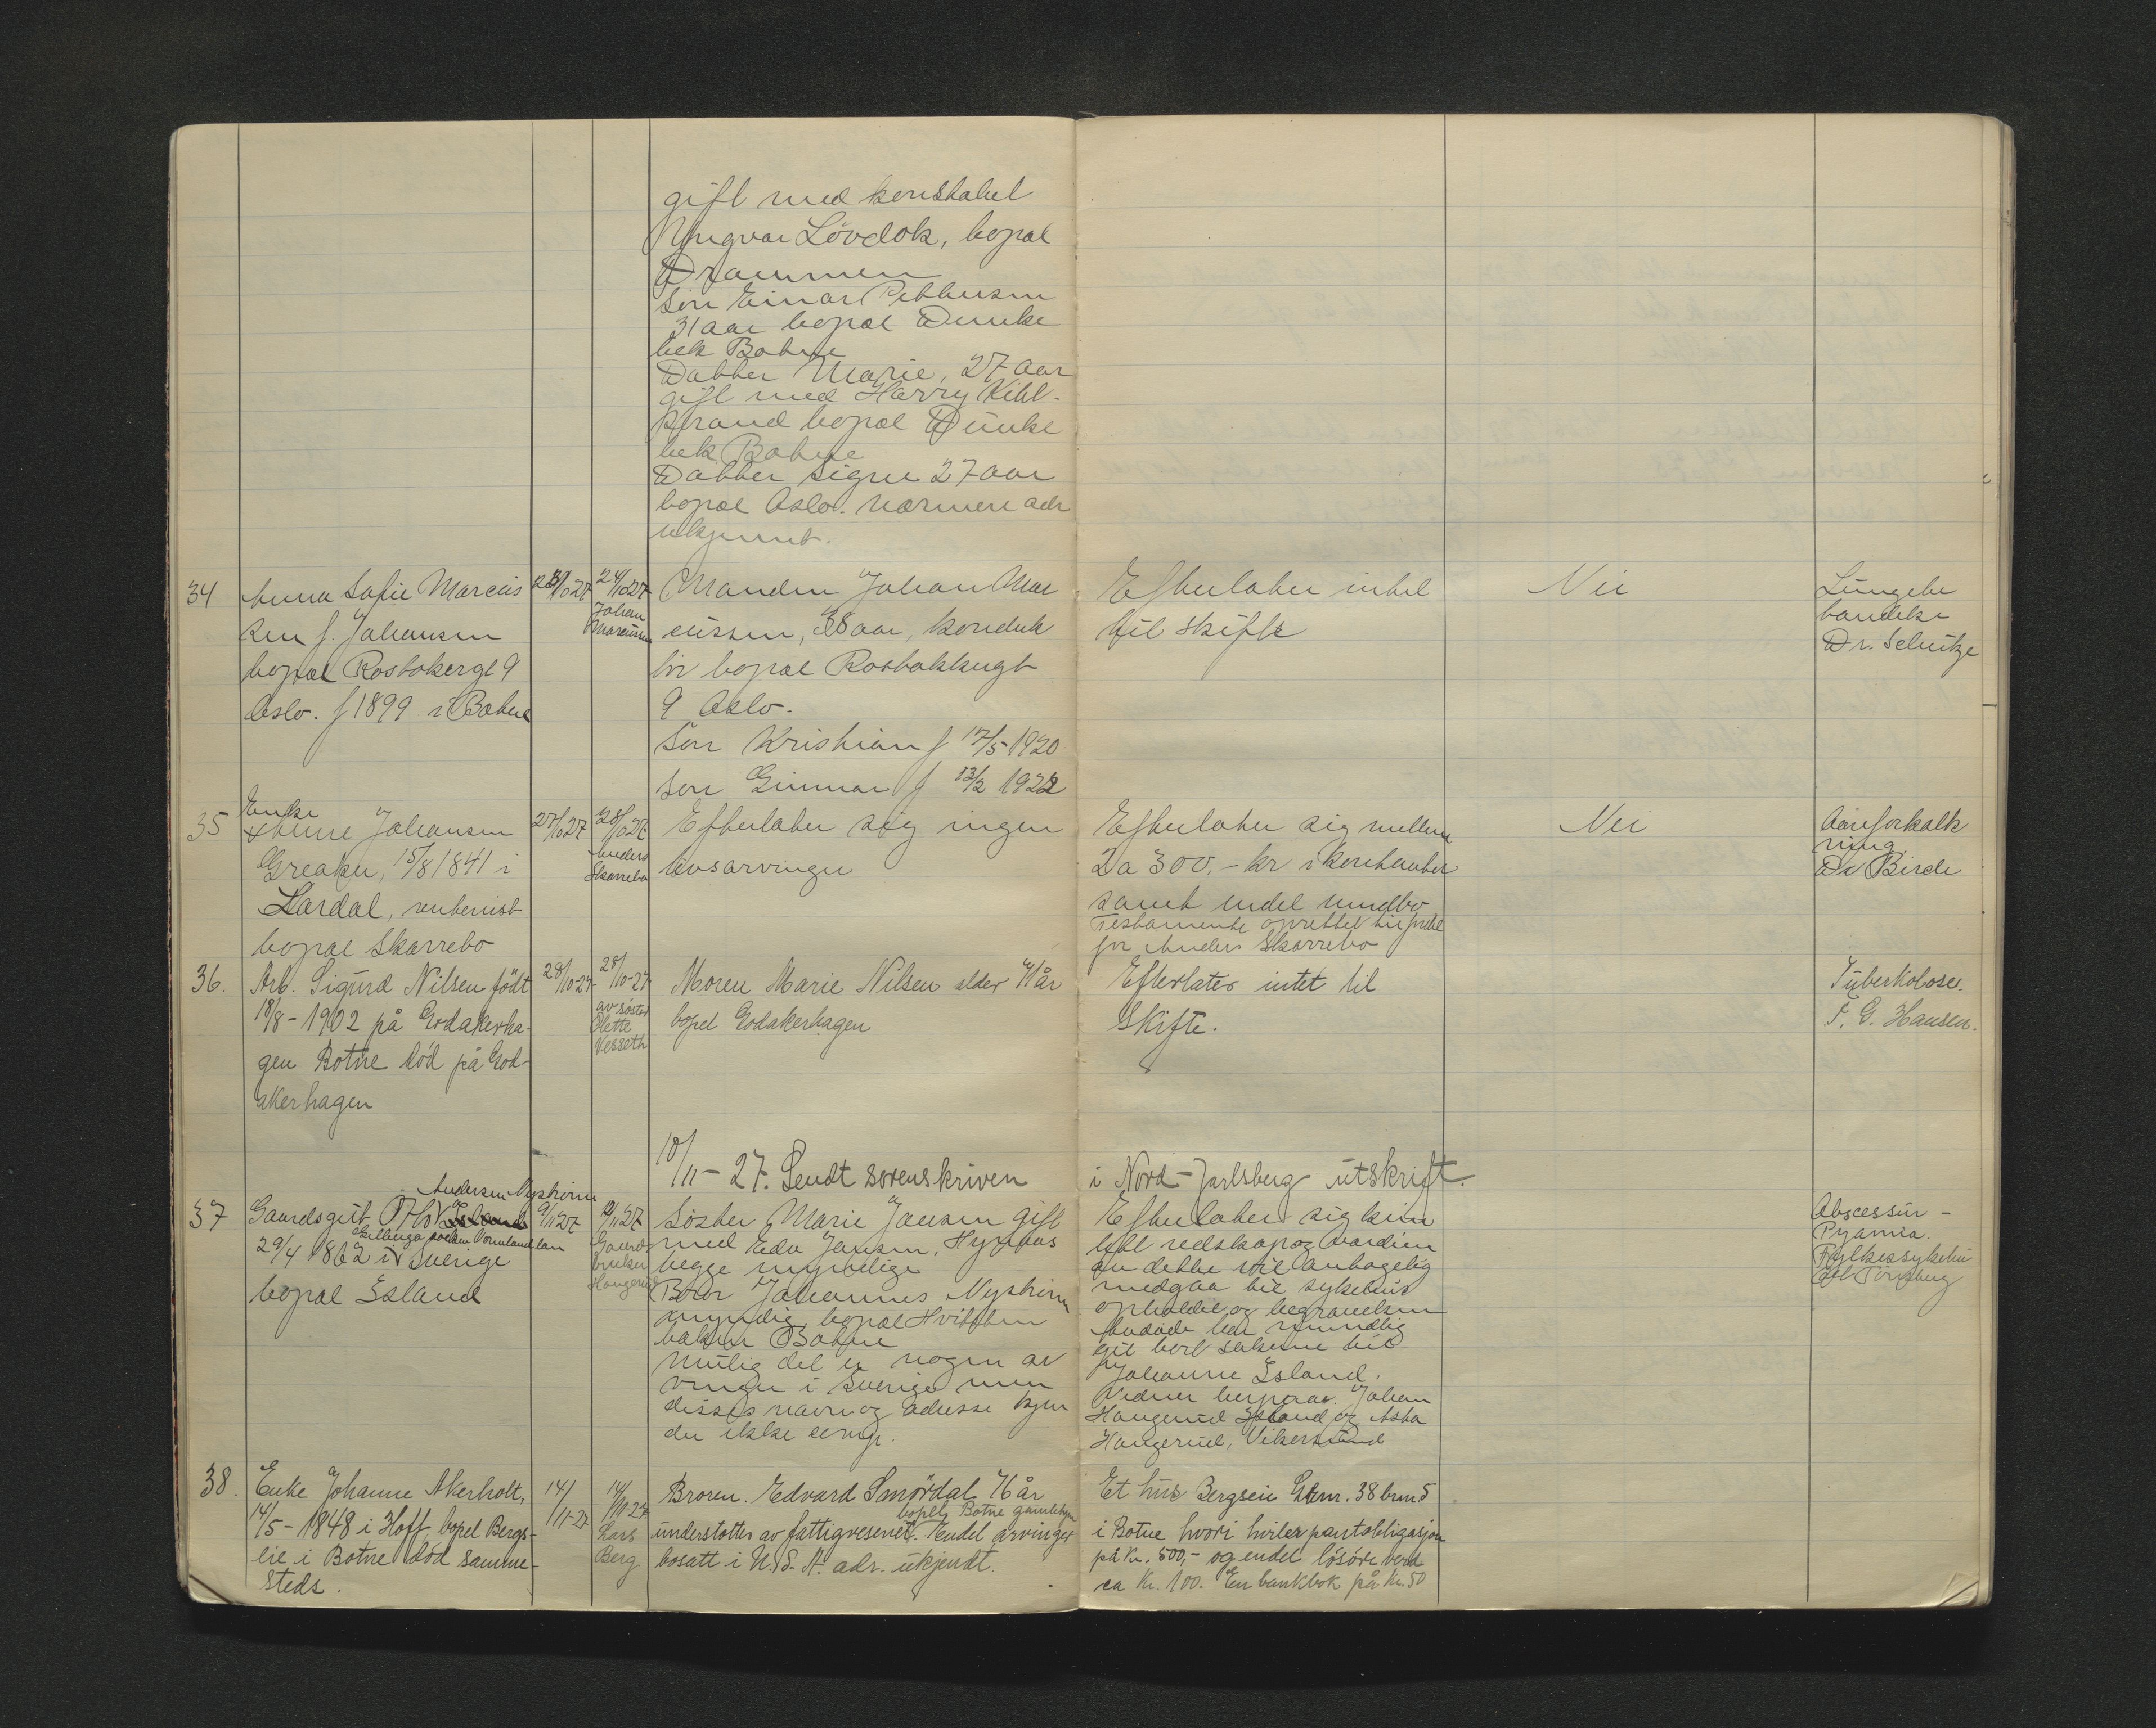 gift med konstabel
Yngvar Lövdok, bopæl
Drammen
Sön Einar Petttersen
31 aar bopæl Dunke
bek Botne
Datter Marie, 27 aar
gift med Harry Kihl-
strand bopæl Dunke
bek Botne
Datter Signe 27 aar
bopæl Oslo. nærmere adr
ukjennt.
34
Anna Sofie Marcus
sen f. Johansen
bopæl Rostokergt 9
Oslo. f 1899 i Botne
23/10 27
24/10 27
Johan
Marcussen
Manden Johan Mar
cussen, 38 aar, konduk
tör bopæl Rostokkergt
9 Oslo.
Sön Kristian f 17/5 1920
Sön Gunnar f 13/2 1922
Efterlater intet
til skifte
Nei
Lungebe
tændelse
Dr. Schutze
35
Enke
Anne Johansen
Greaker, 15/8 1841 i
Lardal, rentenist
bopæl Skarrebo
27/10 27
28/10 27
Anders
Skarrebo
Efterlater sig ingen
livsarvinger
Efterlater sig mellem
2 a 300,- kr i kontanter
samt endel inndbo
Testamente oprettet til fordel
for Anders Skarrebo
Nei
Aareforkalk
ning.
Dr Birch
36.
Arb. Sigurd Nilsen født
18/8 - 1902 på Godakerha-
gen Botne död på God-
akerhagen
28/10-27.
28/10-27
av søster
Olette
Vesseth
Moren Marie Nilsen alder 71 år
bopel Godakerhagen
Efterlater intet til
Skifte.
Tuberkolose.
F. G. Hansen.
10/11 - 27. Sendt sorenskriven i Nord-Jarlsberg utskrift.
37
Andersen Nyström
Gaardsgut Olov Island
Gillberga socken Vermland län
29/4 1862 i Sverige
bopæl Island
9/11 27
10/11 27
Gaard-
bruker
Haugerud
Söster Marie Jansen gift
med Edv Jansen,
begge myndige
Bror Johannes Nyström
myndig, bopæl Hvitsten
Botne
Mulig det er nogen ar
vinger i Sverige men
disses navn og adresse kjen
der ikke
Efterlater sig kun
litt redskap og værdien
av dette vil antagelig
medgaa til sykehus
opholdet og begravelsen
Avdöde har mundlig
git bort sakene til
Johanne Island.
Vidner herpaa. Johan
Haugerud Island og Asta
Haugerud, Vikerstrand
Abscessur -
Pyämia.
Fylkessykehu
set Tönsberg
38.
Enke Johanne Akerholt,
14/5 - 1848 i Hoff, bopel Bergs-
eie i Botne død samme-
steds.
14/11-27
14/11-27
Lars
Berg
Broren. Edvard Smørdal 76 år
bopel Botne gamlehjem
understøttes av fattigvesenet. Endel arvinger
bosatt i U. S. A. adr. ukjendt.
Et hus Bergseie Gnr. 38 brn. 5
i Botne hvori hviler pantobligasjon
på kr. 500,- og endel løsøre verd
ca Kr. 100. En bankbok på Kr. 50